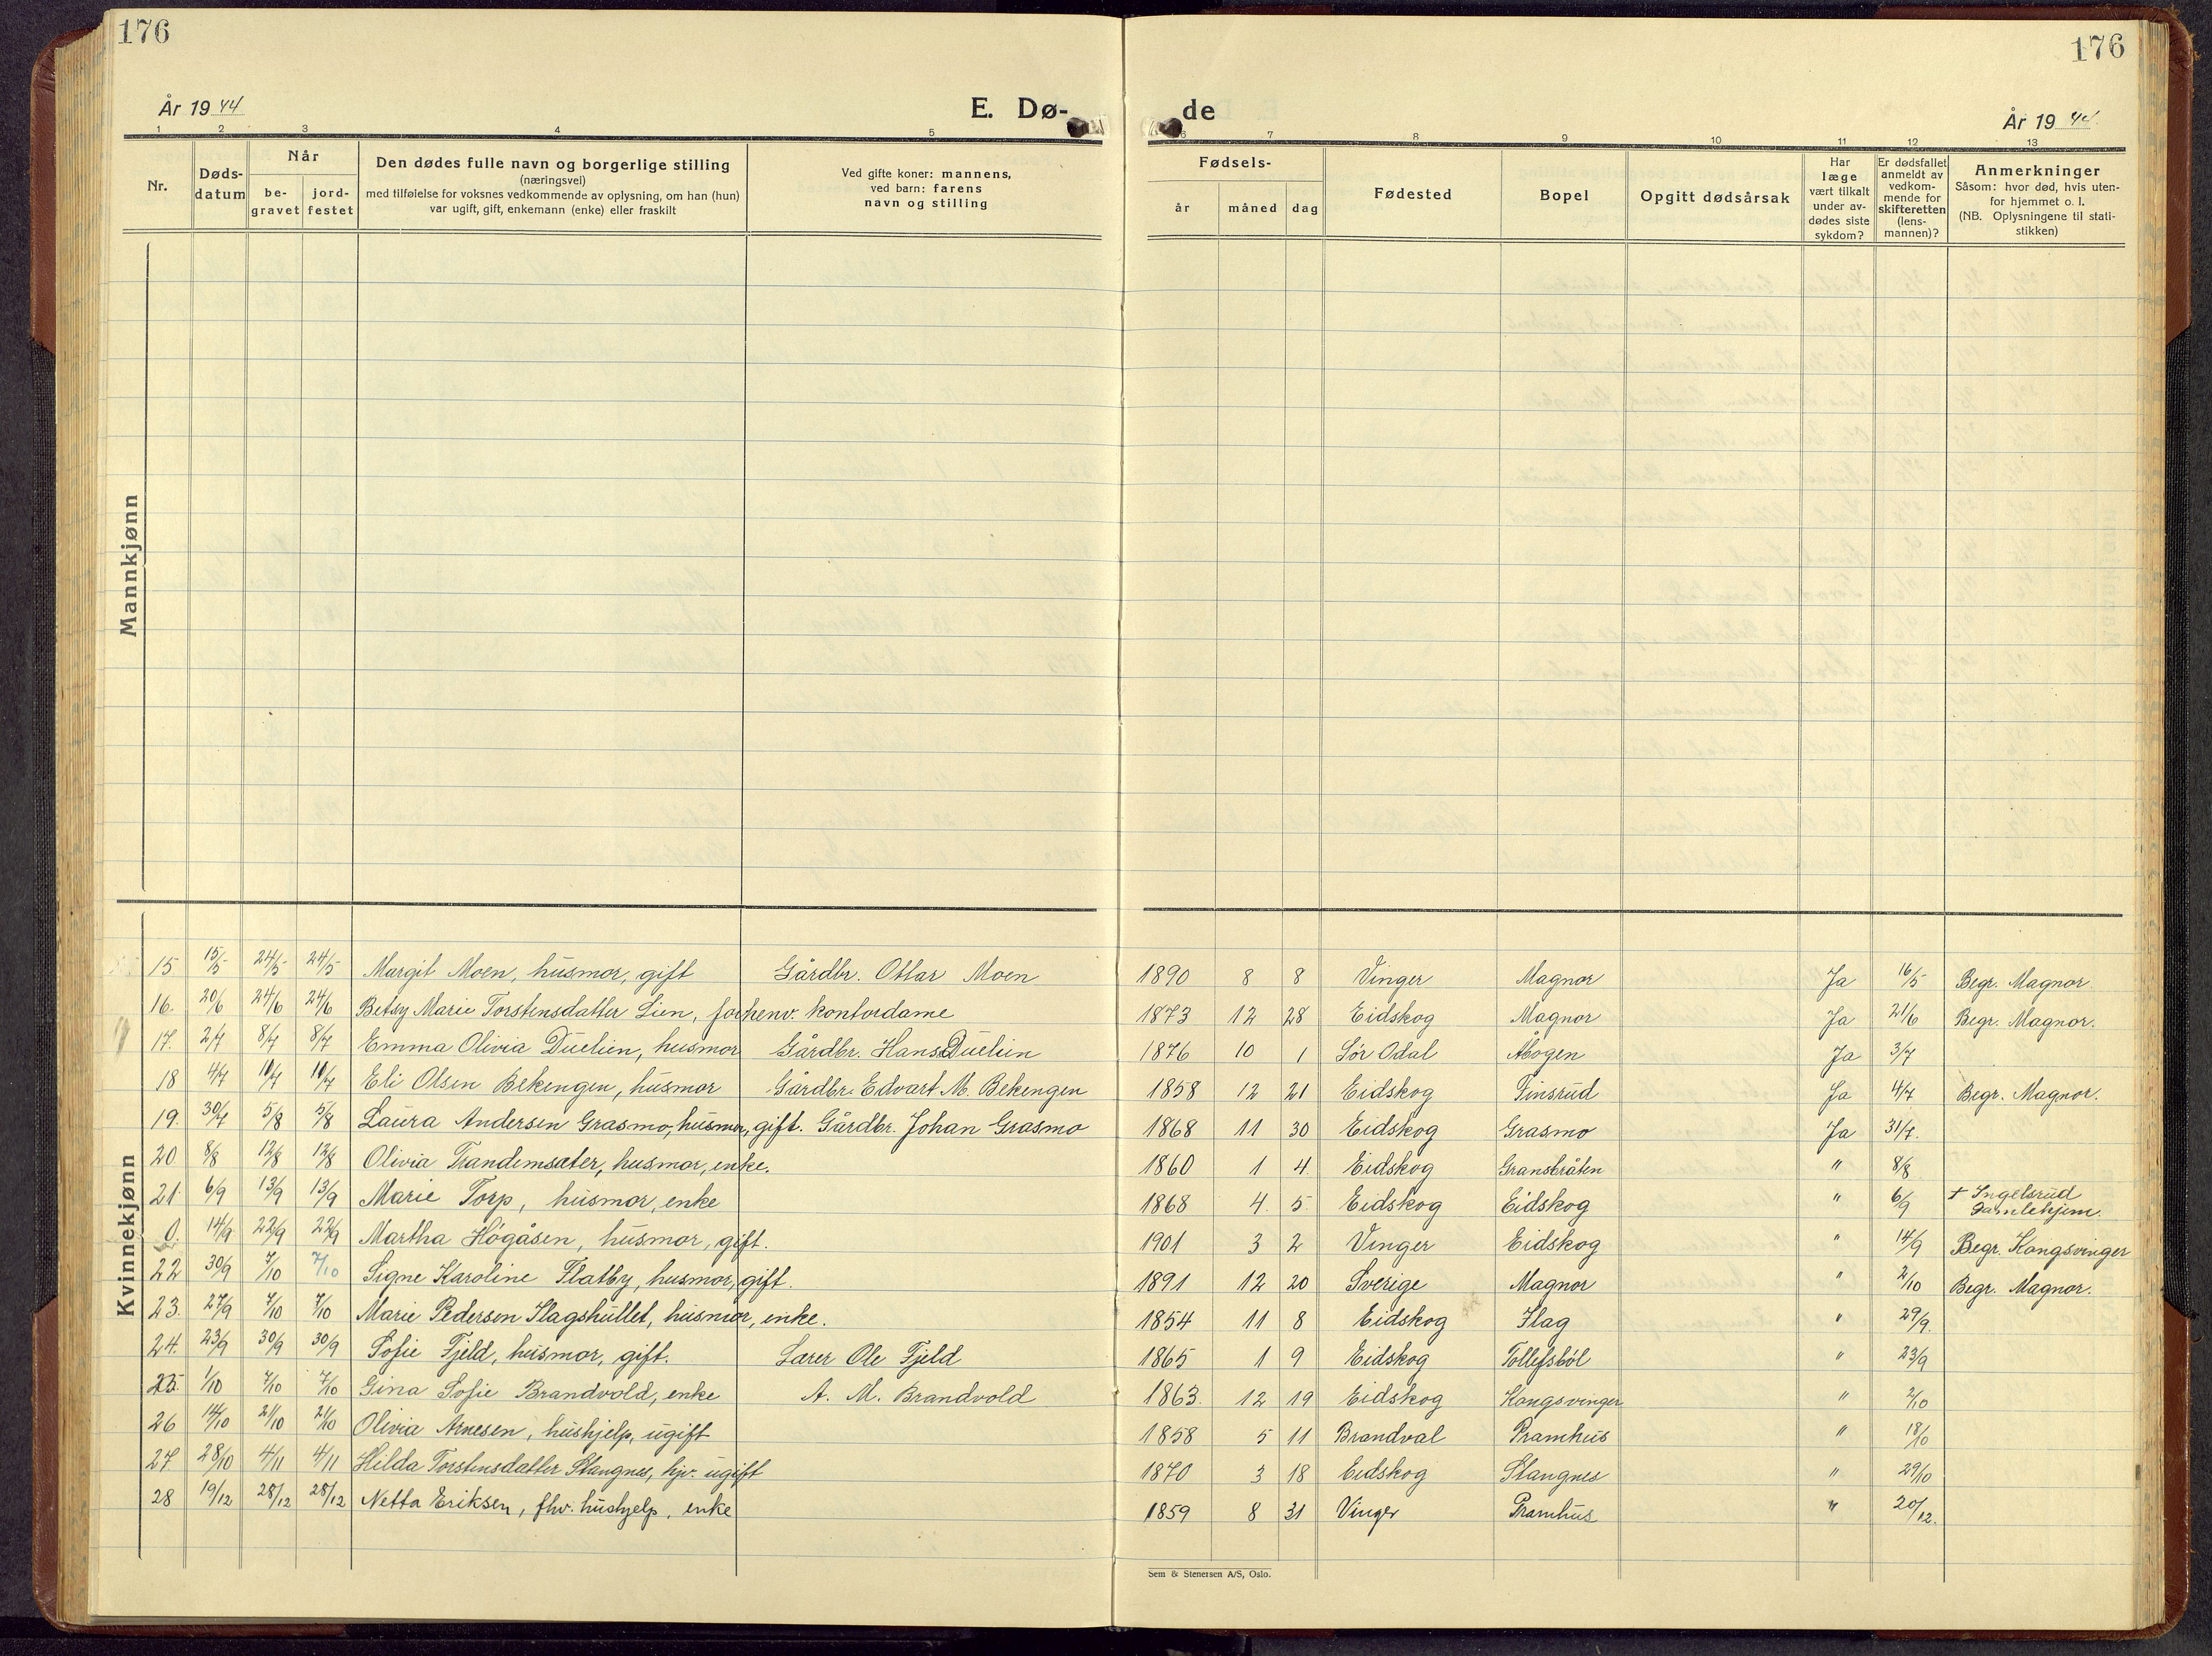 176
176
År 1944
E. Dø-
de
År 1944
1 2 3 4 5 6 7 8 9 10 11 12 13
Nr.
Døds-
datum
Når
be-
gravet
jord-
festet
Den dødes fulle navn og borgerlige stilling
(næringsvei)
med tilføielse for voksnes vedkommende av oplysning, om han (hun)
var ugift, gift, enkemann (enke) eller fraskilt
Ved gifte koner: mannens,
ved barn: farens
navn og stilling
Fødsels-
år måned dag
Fødested
Bopel
Opgitt dødsårsak
Har
læge
vært tilkalt
under av-
dødes siste
sykdom?
Er dødsfallet
anmeldt av
vedkom-
mende for
skifteretten
(lens-
mannen)?
Anmerkninger
Såsom: hvor død, hvis uten-
for hjemmet o. l.
(NB. Oplysningene til stati-
stikken)
Mannkjønn
Kvinnekjønn
15 15/5 24/5 24/5 Margit Moen, husmor, gift Gårdbr. Ottar Moen 1890 8 8 Vinger Magnor Ja 16/5 Begr. Magnor
16. 20/6 24/6 24/6 Betsy Marie Torstensdatter Lien, forhenv. kontordame 1873 12 28 Eidskog Magnor Ja 21/6 Begr. Magnor.
17. 2/7 8/7 8/7 Emma Olivia Duelien, husmor Gårdbr. Hans Duelien 1876 10 1 Sör Odal Åbogen Ja 3/7
18 4/7 10/7 10/7 Eli Olsen Bekengen, husmor Gårdbr. Edvart M. Bekengen 1858 12 21 Eidskog Finsrud Ja 4/7 Begr. Magnor.
19. 30/7 5/8 5/8 Laura Andersen Grasmo, husmor, gift. Gårdbr. Johan Grasmo 1868 11 30 Eidskog Grasmo Ja 31/7.
20 8/8 12/8 12/8 Olivia Trandemsæter, husmor, enke. 1860 1 4 Eidskog Gransbråten " 8/8
21 6/9 13/9 13/9 Marie Torp, husmor, enke 1868 4. 5 Eidskog Eidskog " 6/9 + Ingelsrud
Gamlehjem.
0. 14/9 22/9 22/9 Martha Högåsen, husmor, gift. 1901 3 2 Vinger Eidskog " 14/9 Begr. Kongsvinger
22 30/9 7/10 7/10 Signe Karoline Flatby, husmor, gift. 1891 12 20 Sverige Magnor " 2/10 Begr. Magnor.
23. 27/9 7/10 7/10 Marie Pedersen Flagshullet, husmor, enke. 1854 11 8 Eidskog Flag " 29/9.
24. 23/9 30/9 30/9 Sofie Fjeld, husmor, gift. Lærer Ole Fjeld 1865 1 9 Eidskog Tollefsböl " 23/9
25. 1/10 7/10 7/10 Gina Sofie Brandvold, enke A. M. Brandvold 1863. 12 19 Eidskog Kongsvinger " 2/10
26 14/10 21/10 21/10 Olivia Arnesen, hushjelp, ugift 1858 5 11 Brandval Pramhus " 18/10
27. 28/10 4/11 4/11 Hilda Torstensdatter Stangnes, hjv. ugift 1870 3 18 Eidskog Stangnes " 29/10
28 19/12 28/12 28/12 Netta Eriksen, fhv. hushjelp, enke 1859 8 31 Vinger Pramhus " 20/12.
Sem & Stenersen A/S, Oslo.